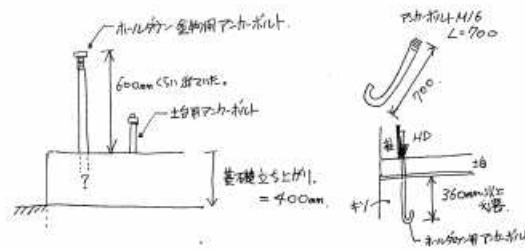 ホールダウン金物用アンカーボルト.
600mmくらい出ていた。
土台用アンカーボルト
?
基礎立ち上がり.
=400mm.
アンカーボルトM16
L=700
700.
柱
HD
土台
キソ
360mm以上
必要.
ホールダウン用アンカーボルト